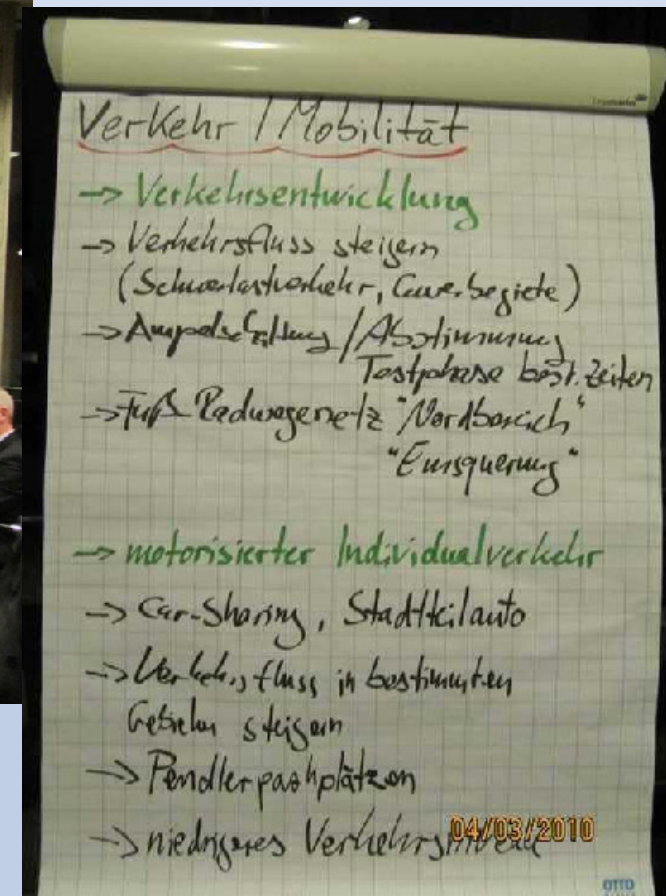 Verkehr / Mobilität
-> Verkehrsentwicklung
-> Verkehrsfluss steigern
(Schwerlastverkehr, Gewerbegiete)
-> Ampelschaltung / Abstimmung
Testphase best. Zeiten
-> Fuß Radwegenetz "Nordbereich"
"Emsquerung"
-> motorisierter Individualverkehr
-> Car-Sharing, Stadtteilauto
-> Verkehrsfluss in bestimmten
steigern
-> Pendlerparkplätzen
-> niedrigeres
04/03/2010
OTTO